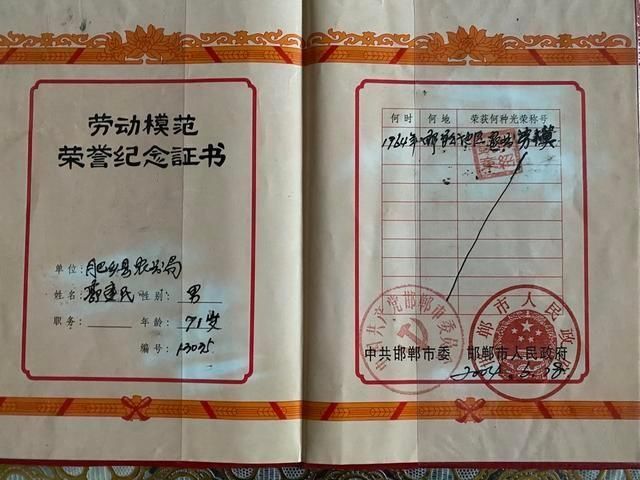 劳动模范
荣誉纪念証书
单位:肥乡县农业局
姓名:建民 性别:男
职务: 年龄:71岁
编号:13035
何时 何地 荣获何种光荣称号
1964年 邯郸地区 劳模
中国共产党邯郸市委员会
邯郸市人民政府
中共邯郸市委 邯郸市人民政府
2004.6.28